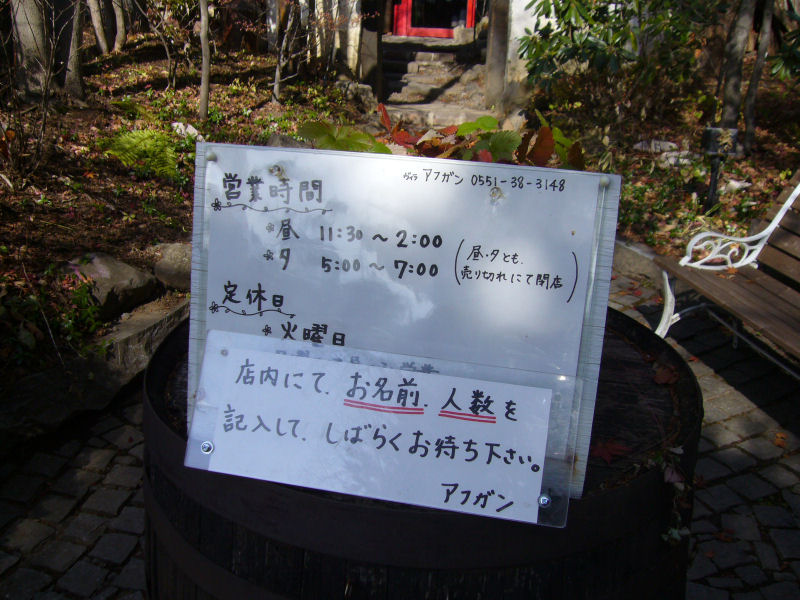 ヴィラ アフガン 0551-38-3148
営業時間
*昼 11:30～2:00
*夕 5:00～7:00
(昼・夕とも、
売り切れにて閉店)
定休日
*火曜日
店内にて、お名前、人数を
記入して、しばらくお待ち下さい。
アフガン